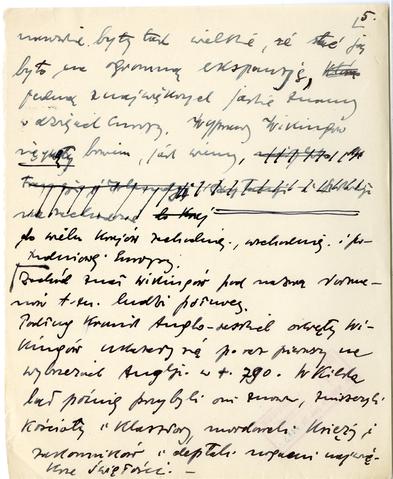 5.
nawskie, były tak wielkie, że stać ją
było na ogromną ekspansję,
jedną z największych jakie znamy
w dziejach Europy. Wyprawy Wikingów
sięgały bowiem, jak wiemy,
do wielu krajów zachodniej, wschodniej i po-
łudniowej Europy.
Zachód znał Wikingów pod nazwą Norma-
nów t. zn. ludzi północy.
Podług Kronik Anglo-saskich okręty Wi-
kingów ukazały się po raz pierwszy na
wybrzeżach Anglji w r. 790. W kilka
lat później przybyli oni znowu, zniszczyli
Kościoły i Klasztory, mordowali Księży i
zakonników i deptali nogami najwię-
ksze świętości. —